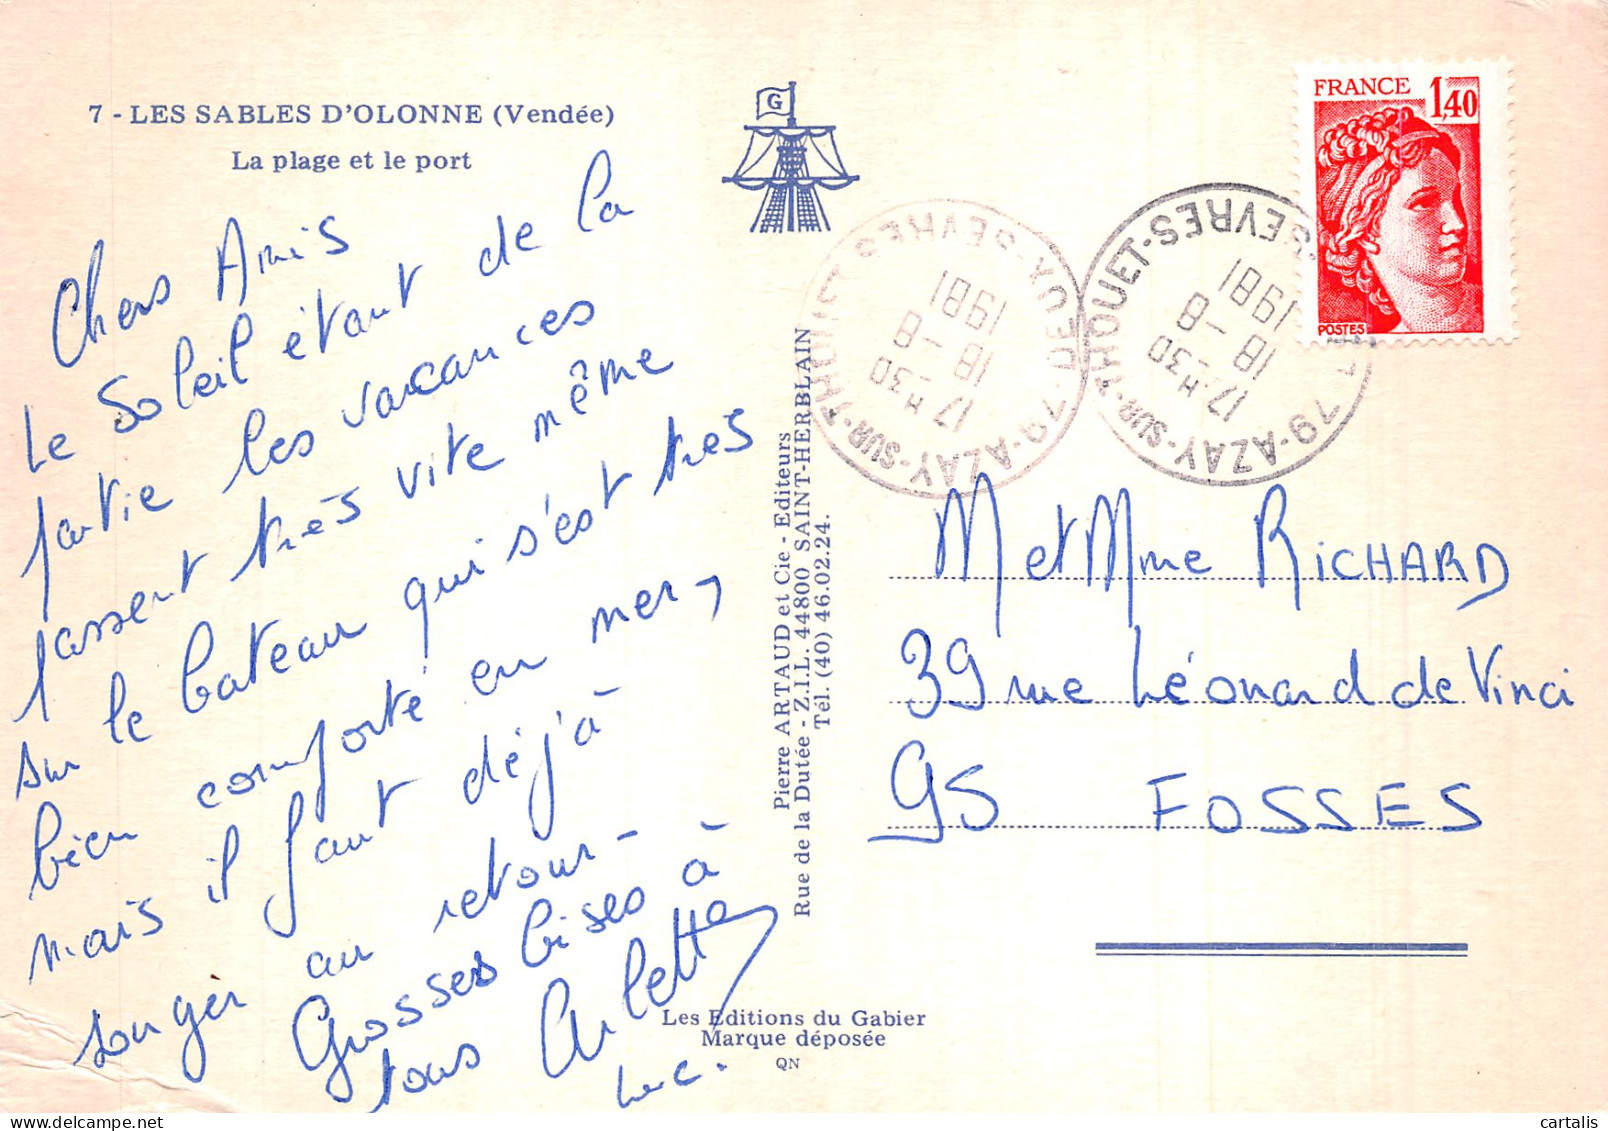 7 - LES SABLES D'OLONNE (Vendée)
La plage et le port
G
Chers Amis
Le Soleil étant de la
partie les vacances
passent très vite même
sur le bateau qui s'est très
bien comporté en mer,
mais il faut déjà
songer au retour-
Grosses bises à
tous Arlette
Luc.
Pierre ARTAUD et Cie - Editeurs
Rue de la Dutée - Z.I.L. 44800 SAINT-HERBLAIN
Tél. (40) 46.02.24.
Les Editions du Gabier
Marque déposée
QN
79-AZAY-SUR-THOUET DEUX-SEVRES
17 H 30
18 -8
1981
79-AZAY-SUR-THOUET-SEVRES
17 H 30
18 -8
1981
FRANCE 1,40
POSTES
M et Mme RICHARD
39 rue Léonard de Vinci
95 FOSSES
cartalis
delcampe.net